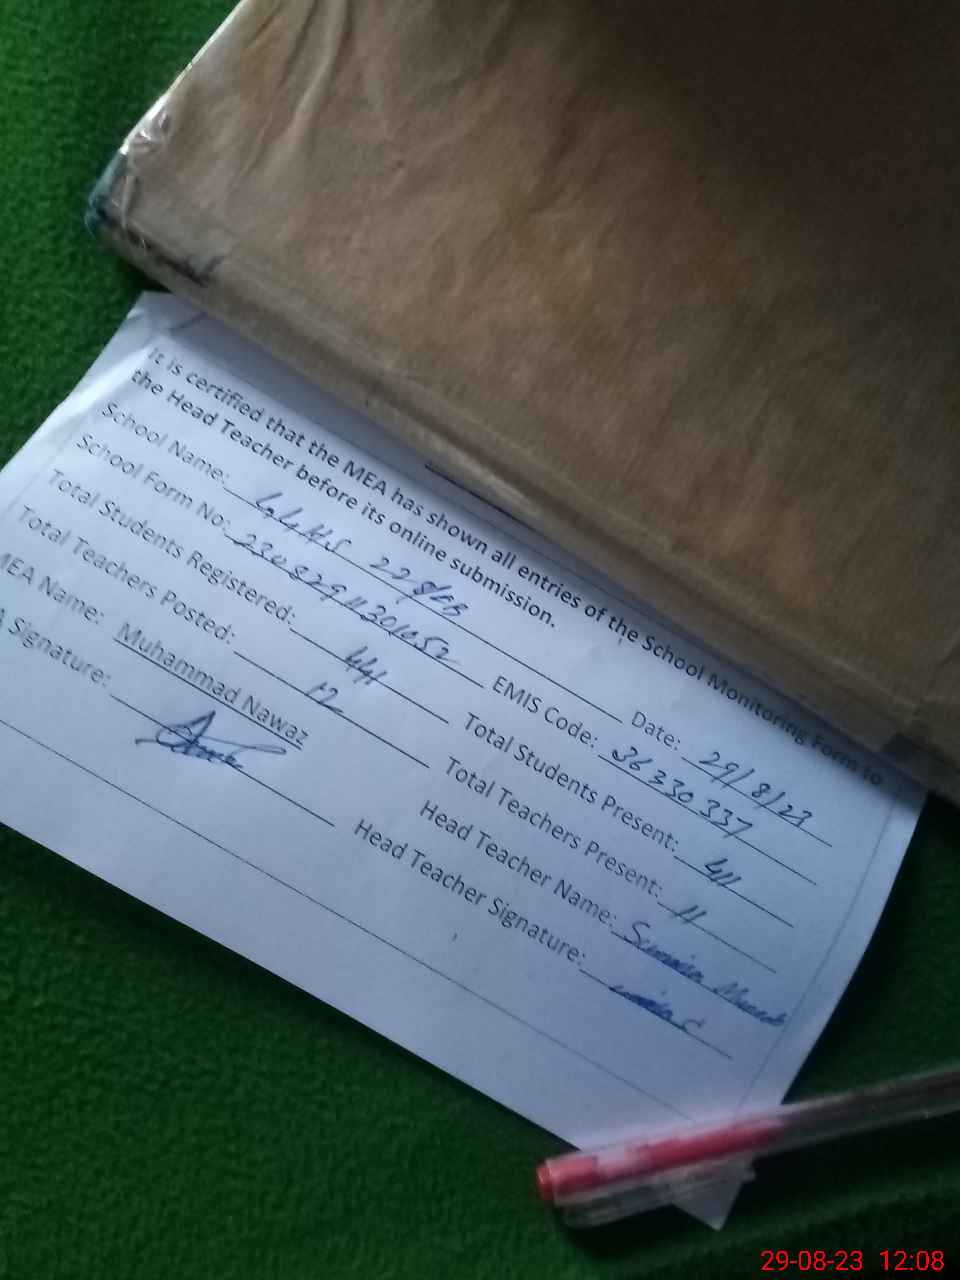 It is certified that the MEA has shown all entries of the School Monitoring Form to
the Head Teacher before its online submission.
School Name: 228/EB Date: 29/8/23
School Form No: EMIS Code: 36330337
Total Students Registered: 441 Total Students Present: 411
Total Teachers Posted: 12 Total Teachers Present: 11
MEA Name: Muhammad Nawaz Head Teacher Name:
Signature: Head Teacher Signature:
29-08-23 12:08